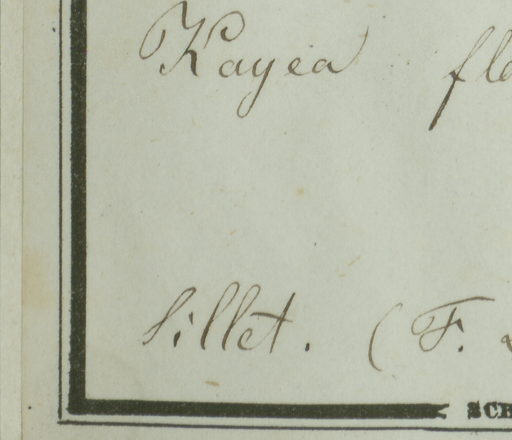 Kayea fl
Sillet. (F.
SCH